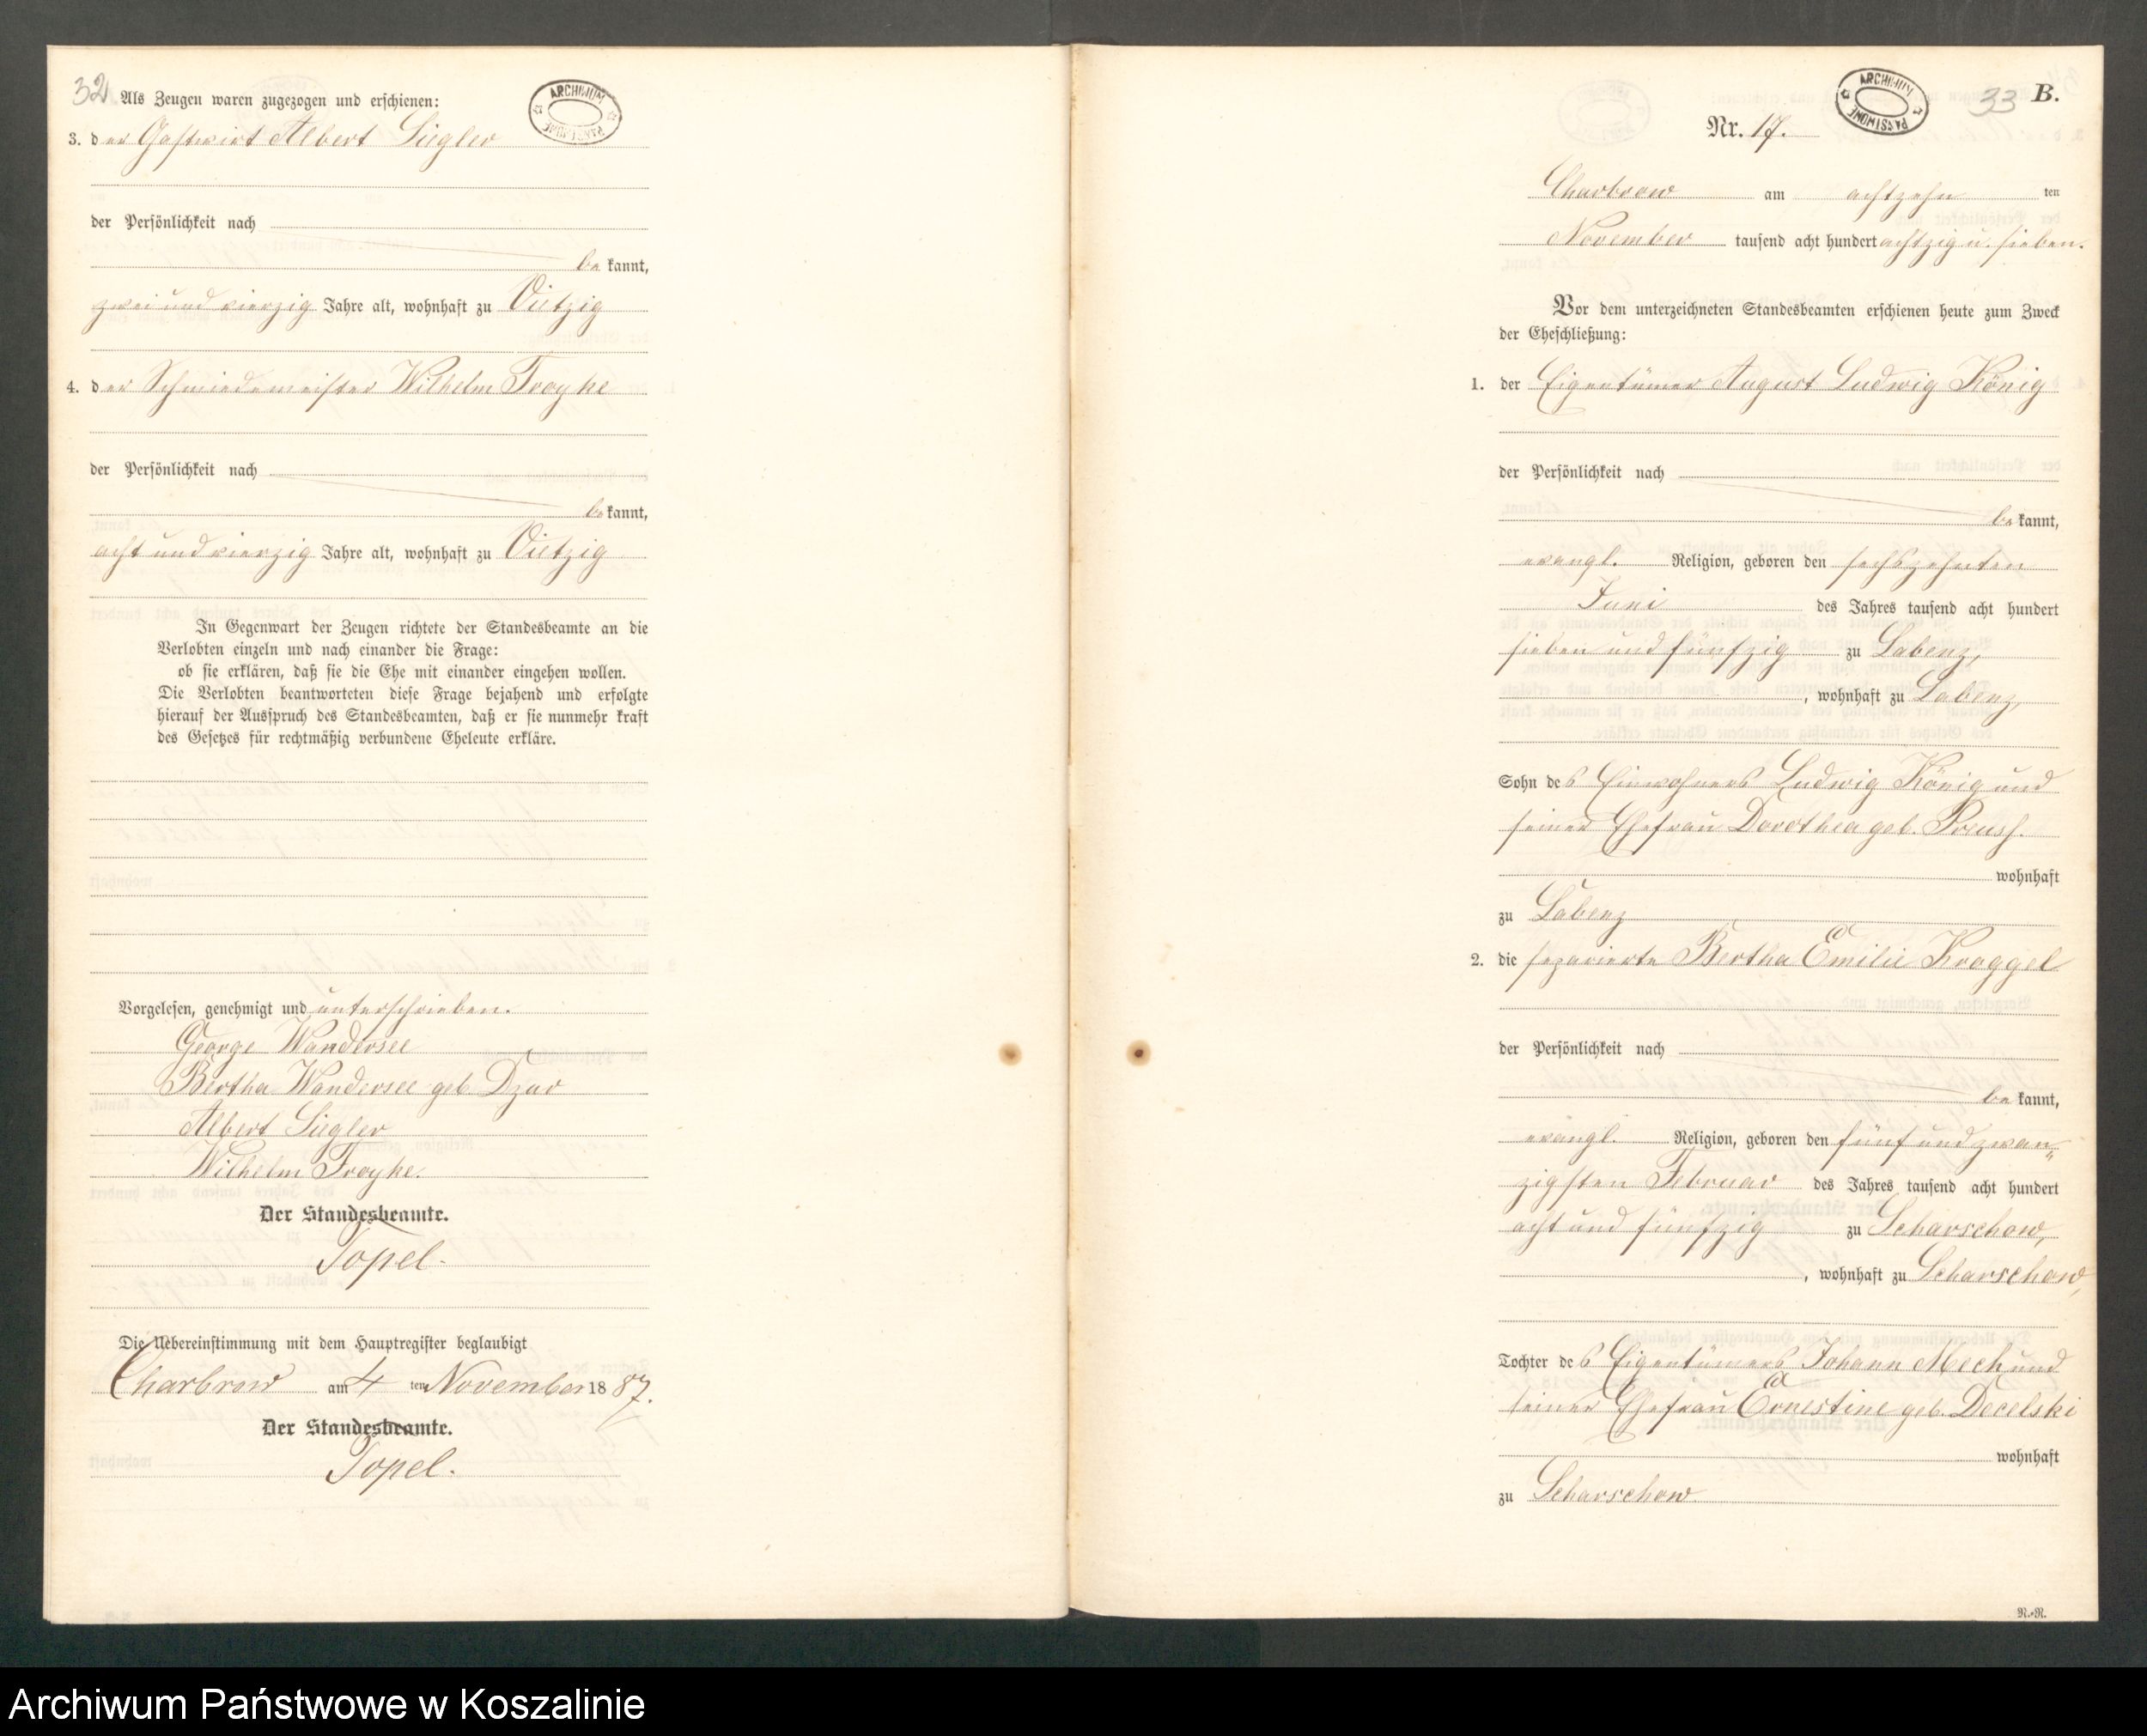 32
Als Zeugen waren zugezogen und erschienen:
ARCHIWUM PAŃSTWOWE
3. der Gastwirt Albert Siegler
der Persönlichkeit nach
bekannt,
zwei und vierzig Jahre alt, wohnhaft zu Vietzig
4. der Schmiedemeister Wilhelm Troyke
der Persönlichkeit nach
bekannt,
acht und vierzig Jahre alt, wohnhaft zu Vietzig
In Gegenwart der Zeugen richtete der Standesbeamte an die
Verlobten einzeln und nach einander die Frage:
ob sie erklären, daß sie die Ehe mit einander eingehen wollen.
Die Verlobten beantworteten diese Frage bejahend und erfolgte
hierauf der Ausspruch des Standesbeamten, daß er sie nunmehr kraft
des Gesetzes für rechtmäßig verbundene Eheleute erkläre.
Vorgelesen, genehmigt und unterschrieben.
George Wandersee
Bertha Wandersee geb. Dzar
Albert Siegler
Wilhelm Troyke.
Der Standesbeamte.
Topel.
Die Uebereinstimmung mit dem Hauptregister beglaubigt
Charbrow am 4 ten November 1887.
Der Standesbeamte.
Topel.
ARCHIWUM PAŃSTWOWE
33 B.
Nr. 17.
Charbrow am achtzehn ten
November tausend acht hundert achtzig u. sieben.
Vor dem unterzeichneten Standesbeamten erschienen heute zum Zweck
der Eheschließung:
1. der Eigentümer August Ludwig König
der Persönlichkeit nach
bekannt,
evangl. Religion, geboren den sechszehnten
Juni des Jahres tausend acht hundert
sieben und fünfzig zu Labenz,
, wohnhaft zu Labenz,
Sohn des Einwohners Ludwig König und
seiner Ehefrau Dorothea geb. Preusß.
wohnhaft
zu Labenz
2. die separierte Bertha Emilie Kroggel
der Persönlichkeit nach
bekannt,
evangl. Religion, geboren den fünf und zwan„
zigsten Februar des Jahres tausend acht hundert
acht und fünfzig zu Scharschow,
, wohnhaft zu Scharschow,
Tochter des Eigentümers Johann Mech und
seiner Ehefrau Ernestine geb. Decelski
wohnhaft
zu Scharschow.
R.-R.
Archiwum Państwowe w Koszalinie